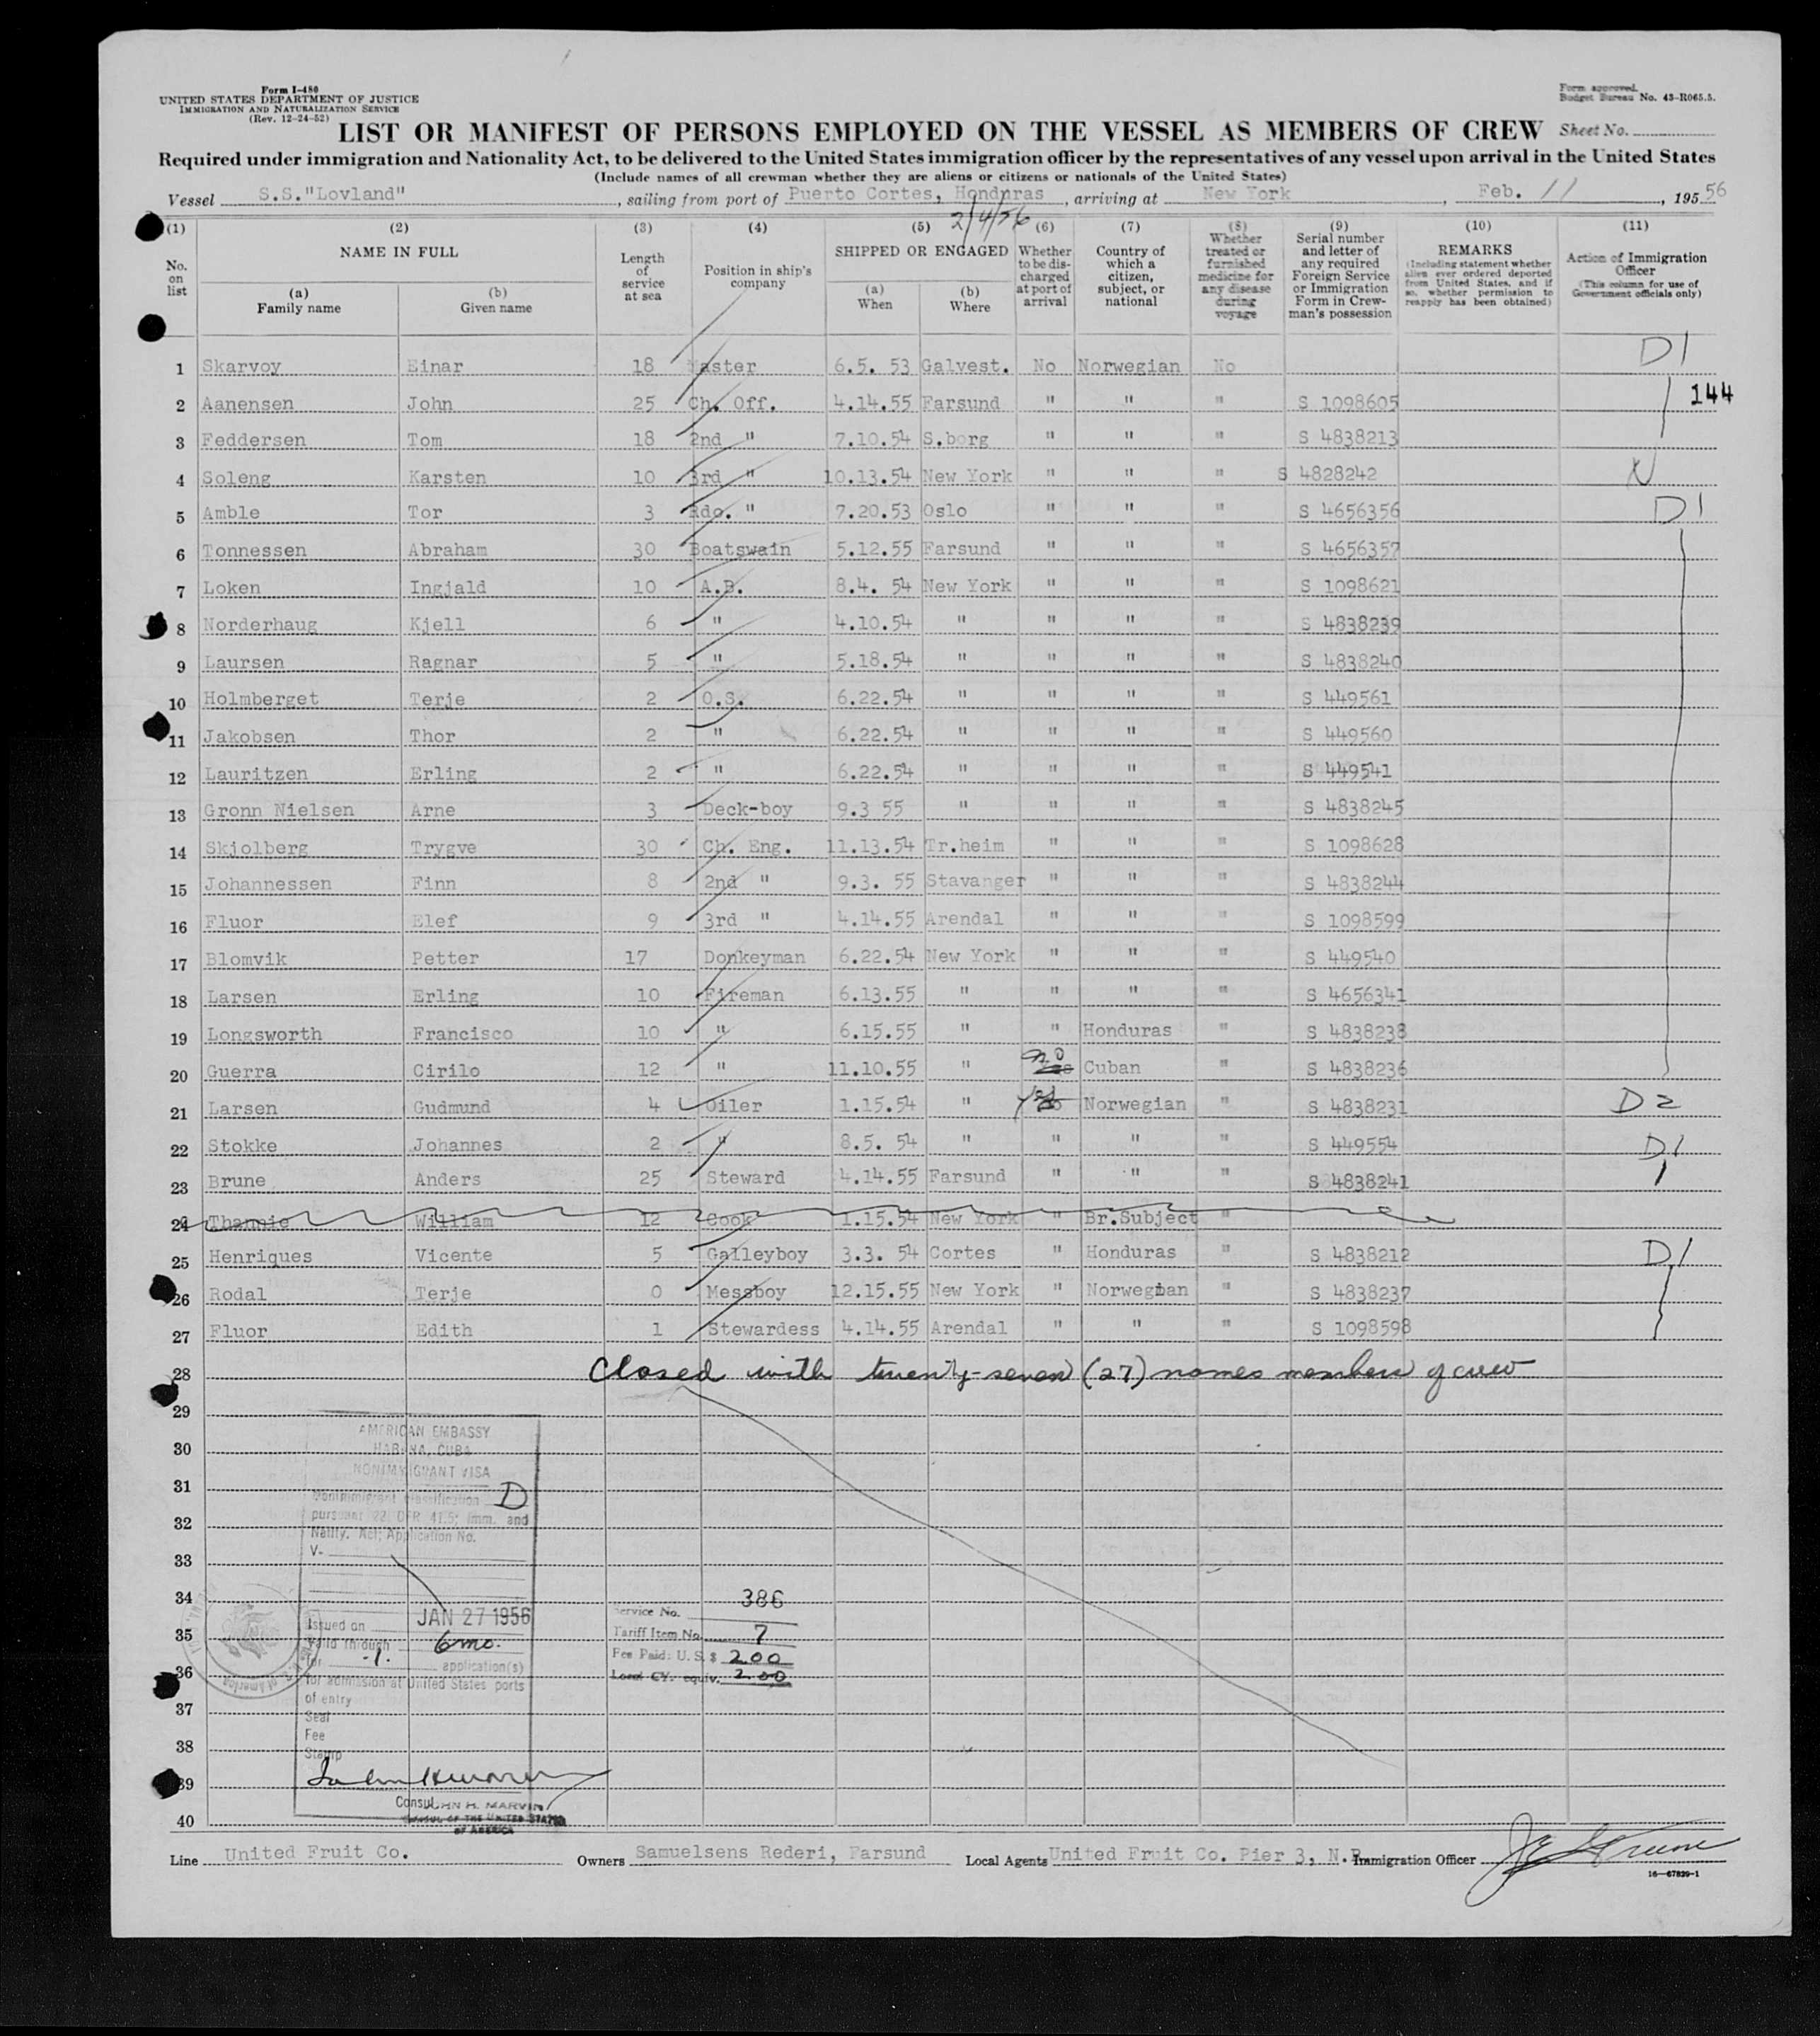 Form I-480
UNITED STATES DEPARTMENT OF JUSTICE
IMMIGRATION AND NATURALIZATION SERVICE
(Rev. 12-24-52)
Form approved.
Budget Bureau No. 43-R065.5.
LIST OR MANIFEST OF PERSONS EMPLOYED ON THE VESSEL AS MEMBERS OF CREW Sheet No.
Required under immigration and Nationality Act, to be delivered to the United States immigration officer by the representatives of any vessel upon arrival in the United States
(Include names of all crewman whether they are aliens or citizens or nationals of the United States)
Vessel S.S."Lovland", sailing from port of Puerto Cortes, Honduras, arriving at New York, Feb. 11, 195 56
2/4/56
(1) No. on list
(2) NAME IN FULL (a) Family name (b) Given name
(3) Length of service at sea
(4) Position in ship's company
(5) SHIPPED OR ENGAGED (a) When (b) Where
(6) Whether to be discharged at port of arrival
(7) Country of which a citizen, subject, or national
(8) Whether treated or furnished medicine for any disease during voyage
(9) Serial number and letter of any required Foreign Service or Immigration Form in Crewman's possession
(10) REMARKS (Including statement whether alien ever ordered deported from United States, and if so, whether permission to reapply has been obtained)
(11) Action of Immigration Officer (This column for use of Government officials only)
1 Skarvoy Einar 18 Master 6.5. 53 Galvest. No Norwegian No D1
2 Aanensen John 25 Ch. Off. 4.14.55 Farsund " " " S 1098605 144
3 Feddersen Tom 18 2nd " 7.10.54 S.borg " " " S 4838213
4 Soleng Karsten 10 3rd " 10.13.54 New York " " " S 4828242
5 Amble Tor 3 Rdo. " 7.20.53 Oslo " " " S 4656356 D1
6 Tonnessen Abraham 30 Boatswain 5.12.55 Farsund " " " S 4656357
7 Loken Ingjald 10 A.B. 8.4. 54 New York " " " S 1098621
8 Norderhaug Kjell 6 " 4.10.54 " " " " S 4838239
9 Laursen Ragnar 5 " 5.18.54 " " " " S 4838240
10 Holmberget Terje 2 O.S. 6.22.54 " " " " S 449561
11 Jakobsen Thor 2 " 6.22.54 " " " " S 449560
12 Lauritzen Erling 2 " 6.22.54 " " " " S 449541
13 Gronn Nielsen Arne 3 Deck-boy 9.3 55 " " " " S 4838245
14 Skjolberg Trygve 30 Ch. Eng. 11.13.54 Tr.heim " " " S 1098628
15 Johannessen Finn 8 2nd " 9.3. 55 Stavanger " " " S 4838244
16 Fluor Elef 9 3rd " 4.14.55 Arendal " " " S 1098599
17 Blomvik Petter 17 Donkeyman 6.22.54 New York " " " S 449540
18 Larsen Erling 10 Fireman 6.13.55 " " " " S 4656341
19 Longsworth Francisco 10 " 6.15.55 " " Honduras " S 4838238
20 Guerra Cirilo 12 " 11.10.55 " no Cuban " S 4838236
21 Larsen Gudmund 4 Oiler 1.15.54 " yes Norwegian " S 4838231 D2
22 Stokke Johannes 2 " 8.5. 54 " " " " S 449554 D1
23 Brune Anders 25 Steward 4.14.55 Farsund " " " S 4838241
24 Thannie William 12 Cook 1.15.54 New York " Br.Subject "
25 Henriques Vicente 5 Galleyboy 3.3. 54 Cortes " Honduras " S 4838212 D1
26 Rodal Terje 0 Messboy 12.15.55 New York " Norwegian " S 4838237
27 Fluor Edith 1 Stewardess 4.14.55 Arendal " " " S 1098598
28 Closed with twenty-seven (27) names members of crew
29
30
31
32
33
34
35
36
37
38
39
40
AMERICAN EMBASSY
HABANA, CUBA
NONIMMIGRANT VISA
Nonimmigrant classification D
pursuant 22 CFR 41.5; Imm. and
Natlty. Act; Application No.
V-
Issued on JAN 27 1956
Valid through 6 mo.
for -1- application(s)
for admission at United States ports
of entry
Seal
Fee
Stamp
Consul JOHN H. MARVIN
CONSUL OF THE UNITED STATES
OF AMERICA
Service No. 386
Tariff Item No. 7
Fee Paid: U.S. $ 2.00
Local CY. equiv. 2.00
Line United Fruit Co. Owners Samuelsens Rederi, Farsund Local Agents United Fruit Co. Pier 3, N.R. Immigration Officer
16—67829-1